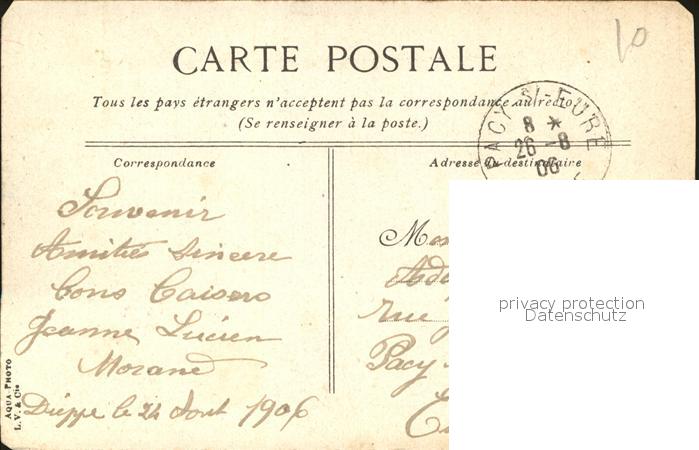 10
CARTE POSTALE
Tous les pays étrangers n'acceptent pas la correspondance au recto
(Se renseigner à la poste.)
PACY-S/-EURE
8 *
26 -8
06
Correspondance
Adresse du destinataire
Souvenir
Amitiés Sincère
Bons Baisers
Jeanne Lucien
Morand
Dieppe le 24 Août 1906
M
Rue
Pacy
privacy protection
Datenschutz
AQUA-PHOTO
L.V. & Cie